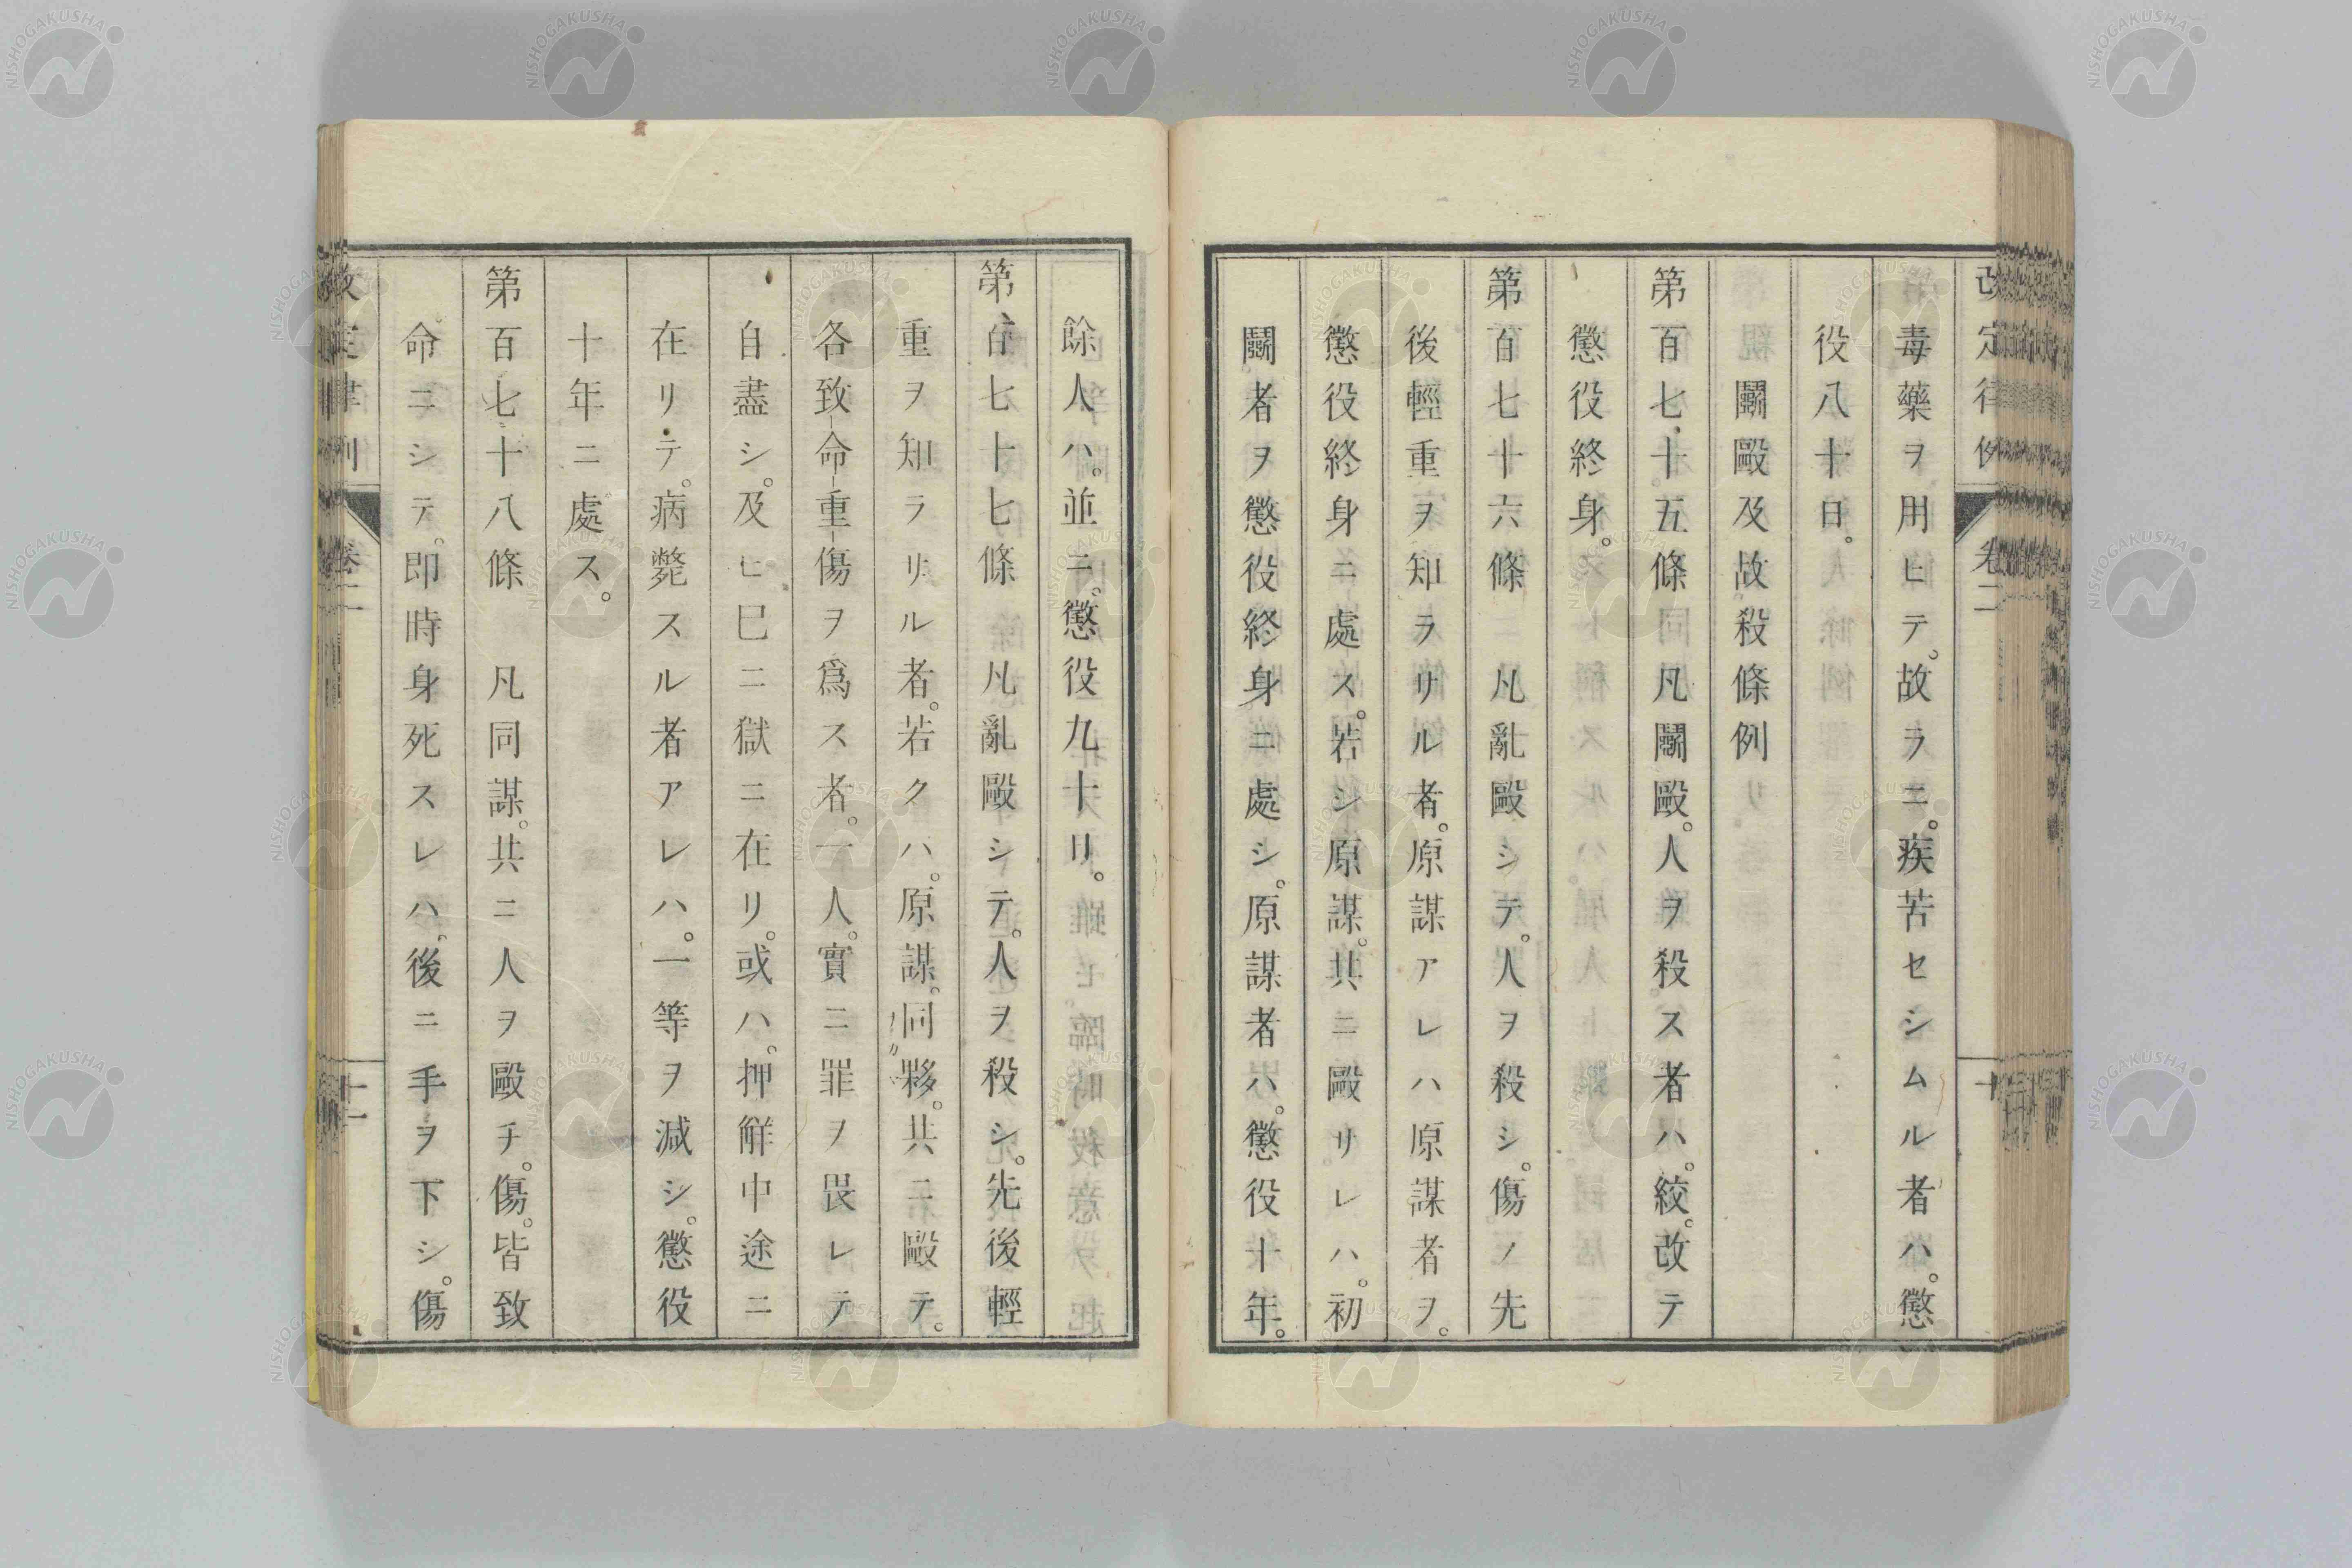 改定律例
卷二
十
毒藥ヲ用ヒテ。故ラニ。疾苦セシムル者ハ。懲
役八十日。
鬭毆及故殺條例
第百七十五條 凡鬭毆。人ヲ殺ス者ハ。絞。改テ
懲役終身。
第百七十六條 凡亂毆シテ。人ヲ殺シ。傷ノ先
後輕重ヲ知ラサル者。原謀アレハ原謀者ヲ。
懲役終身ニ處ス。若シ原謀。共ニ毆サレハ。初
鬭者ヲ懲役終身ニ處シ。原謀者ハ。懲役十年。
餘人ハ。並ニ。懲役九十日。
第百七十七條 凡亂毆シテ。人ヲ殺シ。先後輕
重ヲ知ラサル者。若クハ。原謀。同夥。共ニ毆テ。
各致命重傷ヲ爲ス者。一人。實ニ罪ヲ畏レテ
自盡シ。及ヒ已ニ獄ニ在リ。或ハ。押解中途ニ
在リテ。病斃スル者アレハ。一等ヲ減シ。懲役
十年ニ處ス。
第百七十八條 凡同謀。共ニ人ヲ毆チ。傷。皆致
命ニシテ。即時身死スレハ。後ニ手ヲ下シ。傷
改定律例
卷二
十一
NISHOGAKUSHA